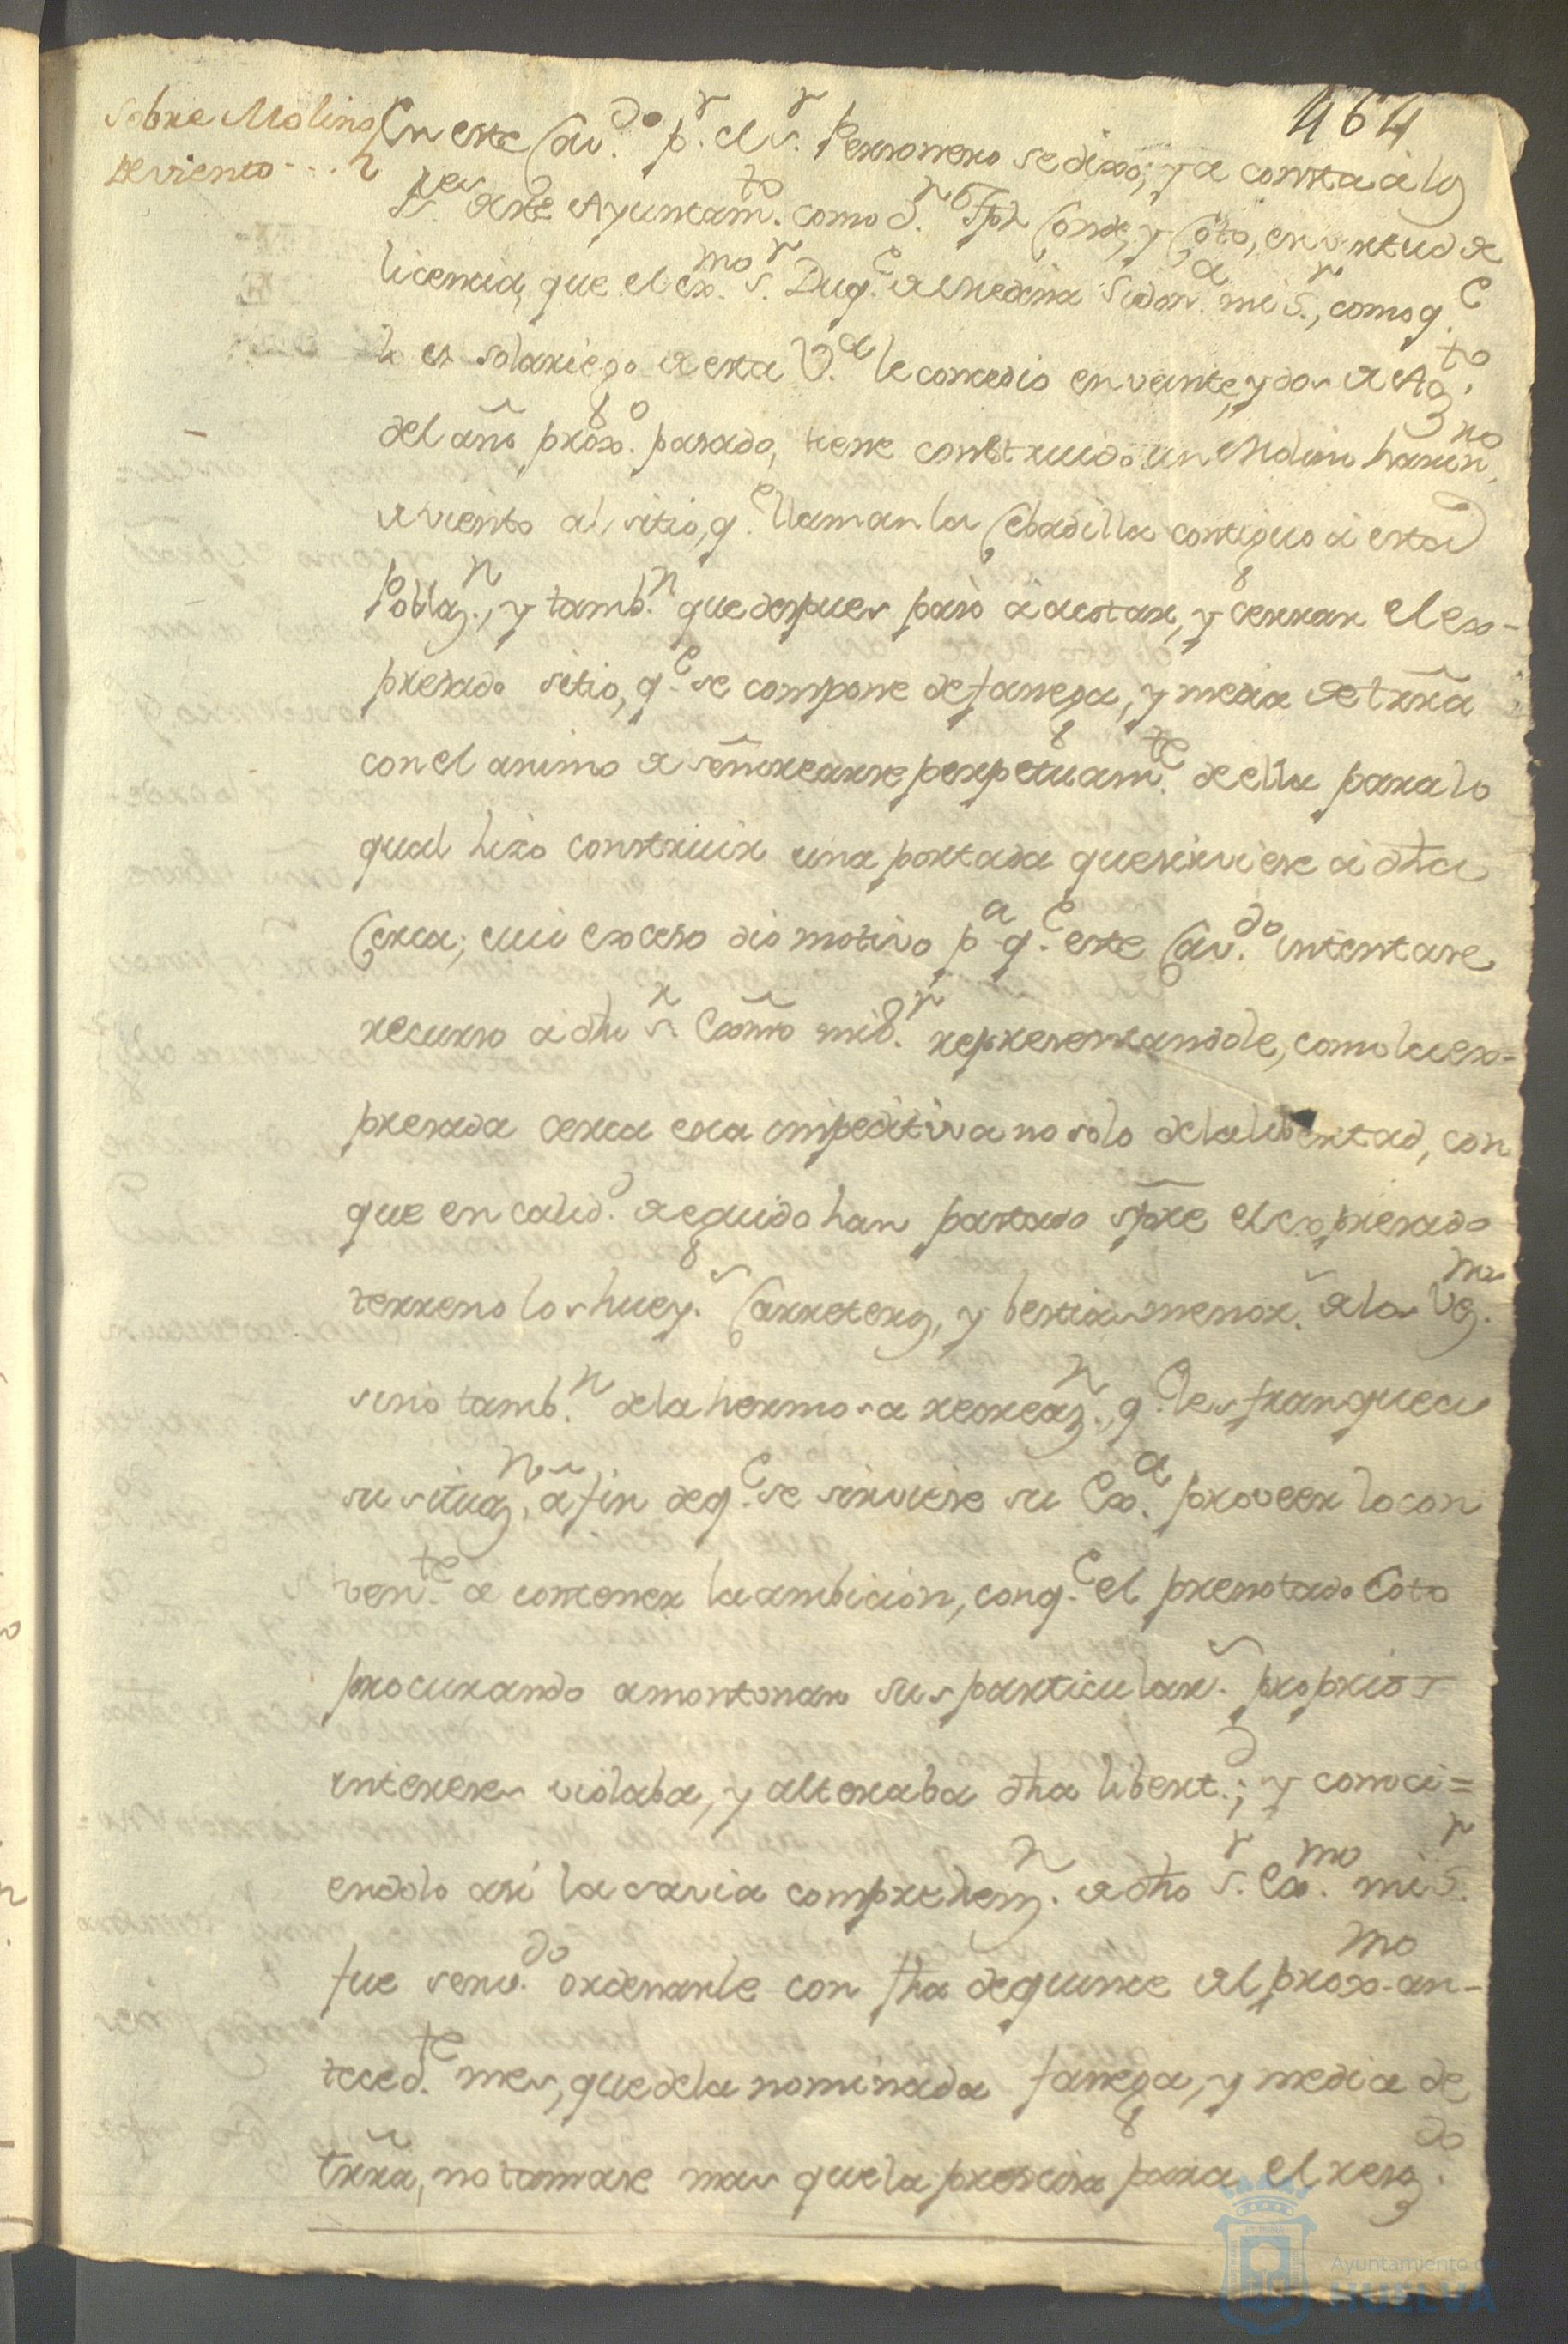 464
Sobre Molino
de viento
En este Cav.do p.r el s.r Personero se dixo; ya consta a los
S.res de este Ayuntam.to como d.n Jph Conde, y Coto, en virtud de
licencia, que el ex.mo s.r Duq.e de Medina Sidon.a mi S.r, como q.e
lo es solariego de esta V.a le concedio en veinte, y dos de Ag.to
del año prox.o pasado, tiene construido un Molino harin.ro
de viento al sitio, q.e llaman la Cebadilla contiguo a esta
Poblaz.n, y tamb.n que despues paso a acotar, y cerrar el ex-
presado sitio, q.e se compone de fanega, y media de trra
con el animo de señorearse perpetuam.te de ella para lo
qual hizo construir una portada que sirviese a dha
Cerca; cuio exceso dio motivo p.a q.e este Cav.do intentase
recurso a dho s.r Exmo mi S.r representandole, como la ex-
presada cerca era impeditiva no solo de la libertad, con
que en calid.d de egido han pastado spre el expresado
terreno los buey.s Carreteros, y bestias menor.s de los Vez.
sino tamb.n de la hermosa recreaz.n, q.e les franquea
su situaz.n, a fin de q.e se sirviese su Ex.a proveer lo con
ven.te a contener la ambicion, con q.e el prenotado Coto
procurando amontonar sus particular.s proprios
intereses violaba, y alteraba dha libert.d; y conoci=
endolo asi la savia comprehenz.n de dho S.r Ex.mo mi S.r
fue serv.do ordenarle con fha de quince del prox.mo an-
teced.te mes, que de la nominada fanega, y media de
trra, no tomase mas que la precisa para el resg.do
Ayuntamiento de
HUELVA